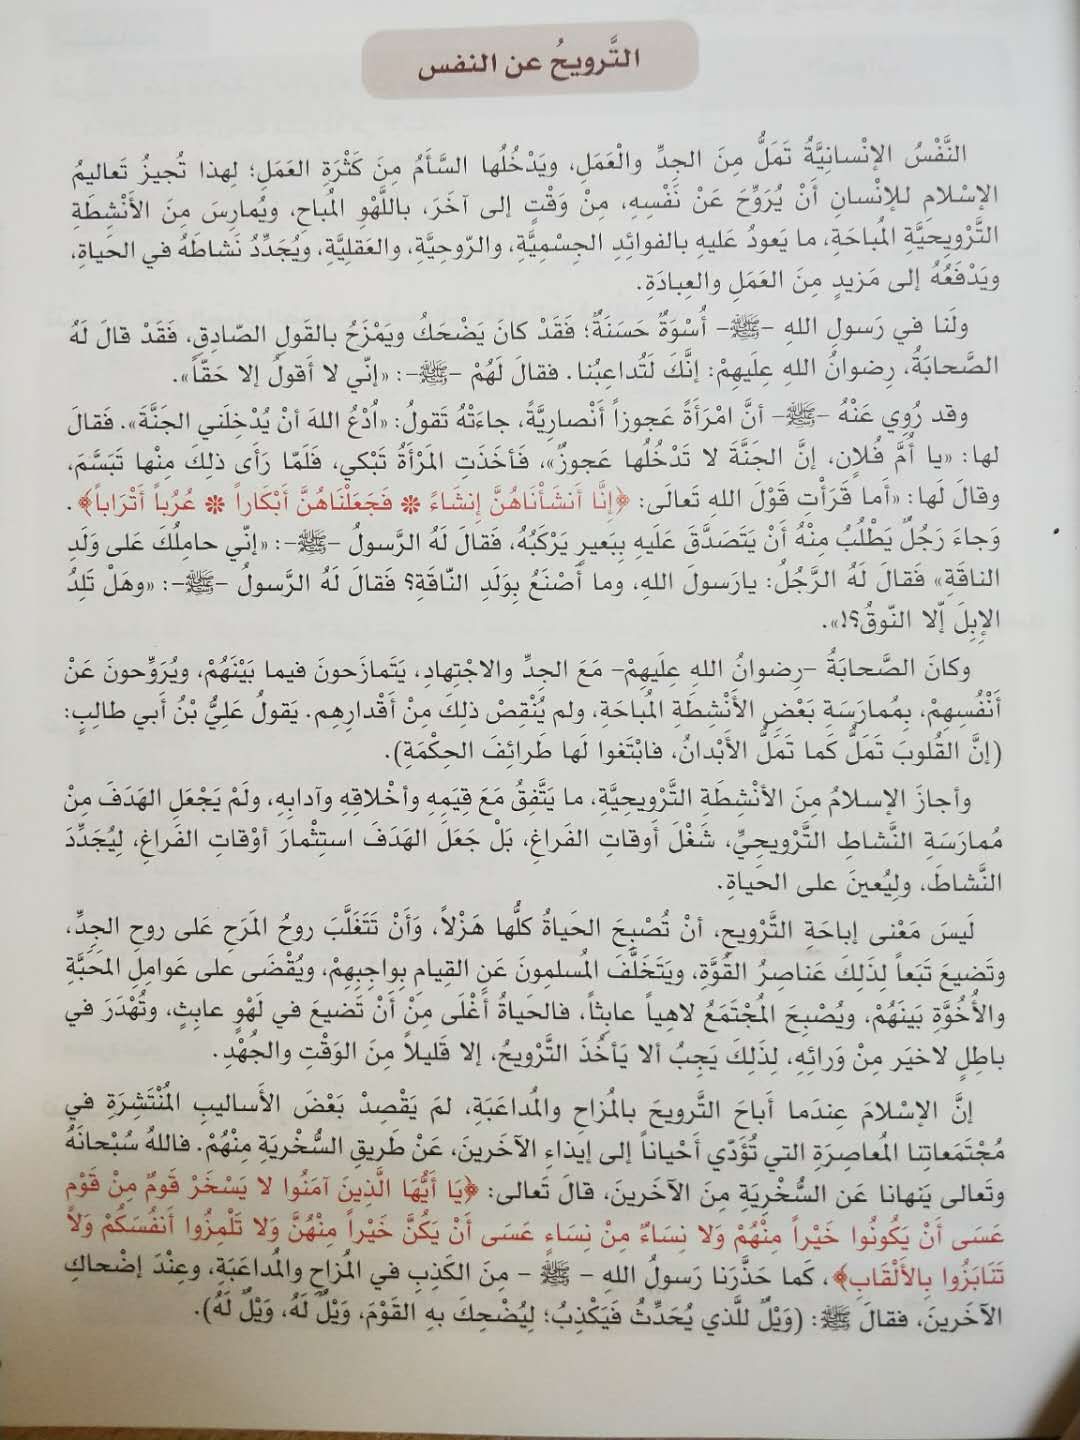 التَّرويحُ عن النفس
النَّفْسُ الإنْسانِيَّةُ تَمَلُّ مِنَ الجِدِّ والْعَمَلِ، ويَدْخُلُها السَّأَمُ مِنَ كَثْرَةِ العَمَلِ؛ لِهذا تُجيزُ تَعاليمُ
الإسْلامِ للإنْسانِ أَنْ يُرَوِّحَ عَنْ نَفْسِهِ، مِنْ وَقْتٍ إلى آخَرَ، باللَّهْوِ المُباحِ، ويُمارِسَ مِنَ الأَنْشِطَةِ
التَّرْويحِيَّةِ المُباحَةِ، ما يَعودُ عَليهِ بالفوائِدِ الجِسْمِيَّةِ، والرّوحِيَّةِ، والعَقلِيَّةِ، ويُجَدِّدُ نَشاطَهُ في الحياةِ،
ويَدْفَعُهُ إلى مَزيدٍ مِنَ العَمَلِ والعِبادَةِ.
ولَنا في رَسولِ اللهِ –ﷺ– أُسْوَةٌ حَسَنَةٌ؛ فَقَدْ كانَ يَضْحَكُ ويَمْزَحُ بالقَولِ الصّادِقِ، فَقَدْ قالَ لَهُ
الصَّحابَةُ، رِضوانُ اللهِ عِلَيهِمْ: إنَّكَ لَتُداعِبُنا. فقالَ لَهُمْ –ﷺ–: «إنّي لا أَقولُ إلا حَقّاً».
وقد رُوِي عَنْهُ –ﷺ– أنَّ امْرَأَةً عَجوزاً أَنْصارِيَّةً، جاءَتْهُ تَقولُ: «اُدْعُ اللهَ أنْ يُدْخِلَني الجَنَّةَ». فَقالَ
لها: «يا أُمَّ فُلانٍ، إنَّ الجَنَّةَ لا تَدْخُلُها عَجوزٌ»، فَأخَذَتِ المَرْأةُ تَبْكي، فَلَمّا رَأى ذلِكَ مِنْها تَبَسَّمَ،
وقالَ لَها: «أَما قَرَأْتِ قَوْلَ اللهِ تَعالَى: ﴿إنَّا أَنشَأْنَاهُنَّ إنشَاءً * فَجَعَلْنَاهُنَّ أَبْكَاراً * عُرُباً أَتْرَاباً﴾.
وَجاءَ رَجُلٌ يَطْلُبُ مِنْهُ أَنْ يَتَصَدَّقَ عَلَيهِ بِبَعيرٍ يَرْكَبُهُ، فَقالَ لَهُ الرَّسولُ –ﷺ–: «إنّي حامِلُكَ عَلى وَلَدِ
الناقَةِ» فَقالَ لَهُ الرَّجُلُ: يارَسولَ اللهِ، وما أَصْنَعُ بِوَلَدِ النّاقَةِ؟ فَقالَ لَهُ الرَّسولُ –ﷺ–: «وهَلْ تَلِدُ
الإبِلَ إّلا النّوقُ؟!».
وكانَ الصَّحابَةُ –رِضوانُ اللهِ عِلَيهِمْ– مَعَ الجِدِّ والاجْتِهادِ، يَتَمازَحونَ فيما بَيْنَهُمْ، ويُرَوِّحونَ عَنْ
أَنْفُسِهِمْ، بِمُمارَسَةِ بَعْضِ الأَنْشِطَةِ المُباحَةِ، ولم يُنْقِصْ ذلِكَ مِنْ أَقْدارِهِم. يَقولُ عَلِيُّ بْنُ أَبي طالِبٍ:
(إنَّ القُلوبَ تَمَلُّ كَما تَمَلُّ الأَبْدانُ، فابْتَغوا لَها طَرائِفَ الحِكْمَةِ).
وأجازَ الإسلامُ مِنَ الأنْشِطَةِ التَّرْويحِيَّةِ، ما يَتَّفِقُ مَعَ قِيَمِهِ وأخْلاقِهِ وآدابِهِ، ولَمْ يَجْعَلِ الهَدَفَ مِنْ
مُمارَسَةِ النَّشاطِ التَّرْويحِيِّ، شَغْلَ أَوقاتِ الفَراغِ، بَلْ جَعَلَ الهَدَفَ استِثْمارَ أوْقاتِ الفَراغِ، لِيُجَدِّدَ
النَّشاطَ، ولِيُعينَ على الحَياةِ.
لَيسَ مَعْنى إباحَةِ التَّرْويحِ، أنْ تُصْبِحَ الحَياةُ كلُّها هَزْلاً، وَأَنْ تَتَغَلَّبَ روحُ المَرَحِ عَلى روحِ الجِدِّ،
وتَضيعَ تَبَعاً لِذَلِكَ عَناصِرُ القُوَّةِ، ويَتَخَلَّفَ المُسلِمونَ عَنِ القِيامِ بِواجِبِهِمْ، ويُقْضَى على عَوامِلِ المَحَبَّةِ
والأُخُوَّةِ بينَهُمْ، ويُصْبِحَ المُجْتَمَعُ لاهِياً عابِثاً، فالحَياةُ أغْلَى مِنْ أَنْ تَضيعَ في لَهْوٍ عابِثٍ، وتُهْدَرَ في
باطِلٍ لاخيَر مِنْ وَرائِهِ، لِذَلِكَ يَجِبُ ألا يَأخُذَ التَّرْويحُ، إلا قَليلاً مِنَ الوَقْتِ والجُهْدِ.
إنَّ الإسْلامَ عِندَما أَباحَ التَّرويحَ بالمُزاحِ والمُداعَبَةِ، لمَ يَقْصِدْ بَعْضَ الأَساليبِ المُنْتَشِرَةِ في
مُجْتَمَعاتِنا المُعاصِرَةِ التي تُؤَدّي أَحْياناً إلى إيذاءِ الآخَرينَ، عَنْ طَريقِ السُّخْرِيَةِ مِنْهُمْ. فاللهُ سُبْحانَهُ
وتَعالى يَنهانا عَنِ السُّخْرِيَةِ مِنَ الآخَرينَ، قالَ تَعالى: ﴿يَا أَيُّهَا الَّذِينَ آمَنُوا لا يَسْخَرْ قَومٌ مِنْ قَوْمٍ
عَسَى أَنْ يَكُونُوا خَيْراً مِنْهُمْ وَلا نِسَاءٌ مِنْ نِسَاءٍ عَسَى أَنْ يَكُنَّ خَيْراً مِنْهُنَّ وَلا تَلْمِزُوا أَنفُسَكُمْ وَلاَ
تَنَابَزُوا بِالأَلْقَابِ﴾، كَما حَذَّرَنا رَسولُ اللهِ – ﷺ – مِنَ الكَذِبِ في المُزاحِ والمُداعَبَةِ، وعِنْدَ إضْحاكِ
الآخَرينَ، فقالَ ﷺ: (وَيْلٌ للَّذي يُحَدِّثُ فَيَكْذِبُ؛ لِيُضْحِكَ بهِ القَوْمَ، وَيْلٌ لَهُ، وَيْلٌ لَهُ).